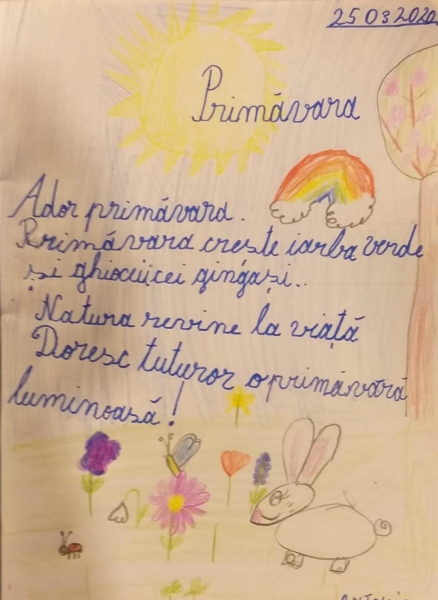 25 03 2020
Primăvara
Ador primăvara.
Primăvara creste iarba verde
și ghiocuicei gingași..
Natura revine la viață
Doresc tuturor o primăvară
luminoasă!